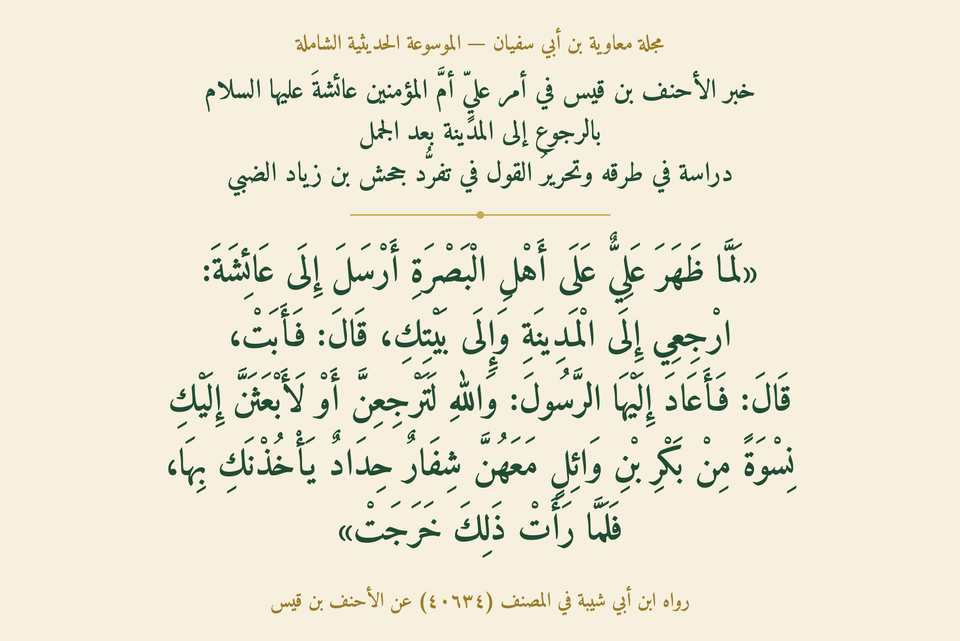 مجلة معاوية بن أبي سفيان — الموسوعة الحديثية الشاملة
خبر الأحنف بن قيس في أمر عليٍّ أمَّ المؤمنين عائشةَ عليها السلام
بالرجوع إلى المدينة بعد الجمل
دراسة في طرقه وتحريرُ القول في تفرُّد جحش بن زياد الضبي
«لَمَّا ظَهَرَ عَلِيٌّ عَلَى أَهْلِ الْبَصْرَةِ أَرْسَلَ إِلَى عَائِشَةَ:
ارْجِعِي إِلَى الْمَدِينَةِ وَإِلَى بَيْتِكِ، قَالَ: فَأَبَتْ،
قَالَ: فَأَعَادَ إِلَيْهَا الرَّسُولَ: وَاللهِ لَتَرْجِعِنَّ أَوْ لَأَبْعَثَنَّ إِلَيْكِ
نِسْوَةً مِنْ بَكْرِ بْنِ وَائِلٍ مَعَهُنَّ شِفَارٌ حِدَادٌ يَأْخُذْنَكِ بِهَا،
فَلَمَّا رَأَتْ ذَلِكَ خَرَجَتْ»
رواه ابن أبي شيبة في المصنف (٤٠٦٣٤) عن الأحنف بن قيس